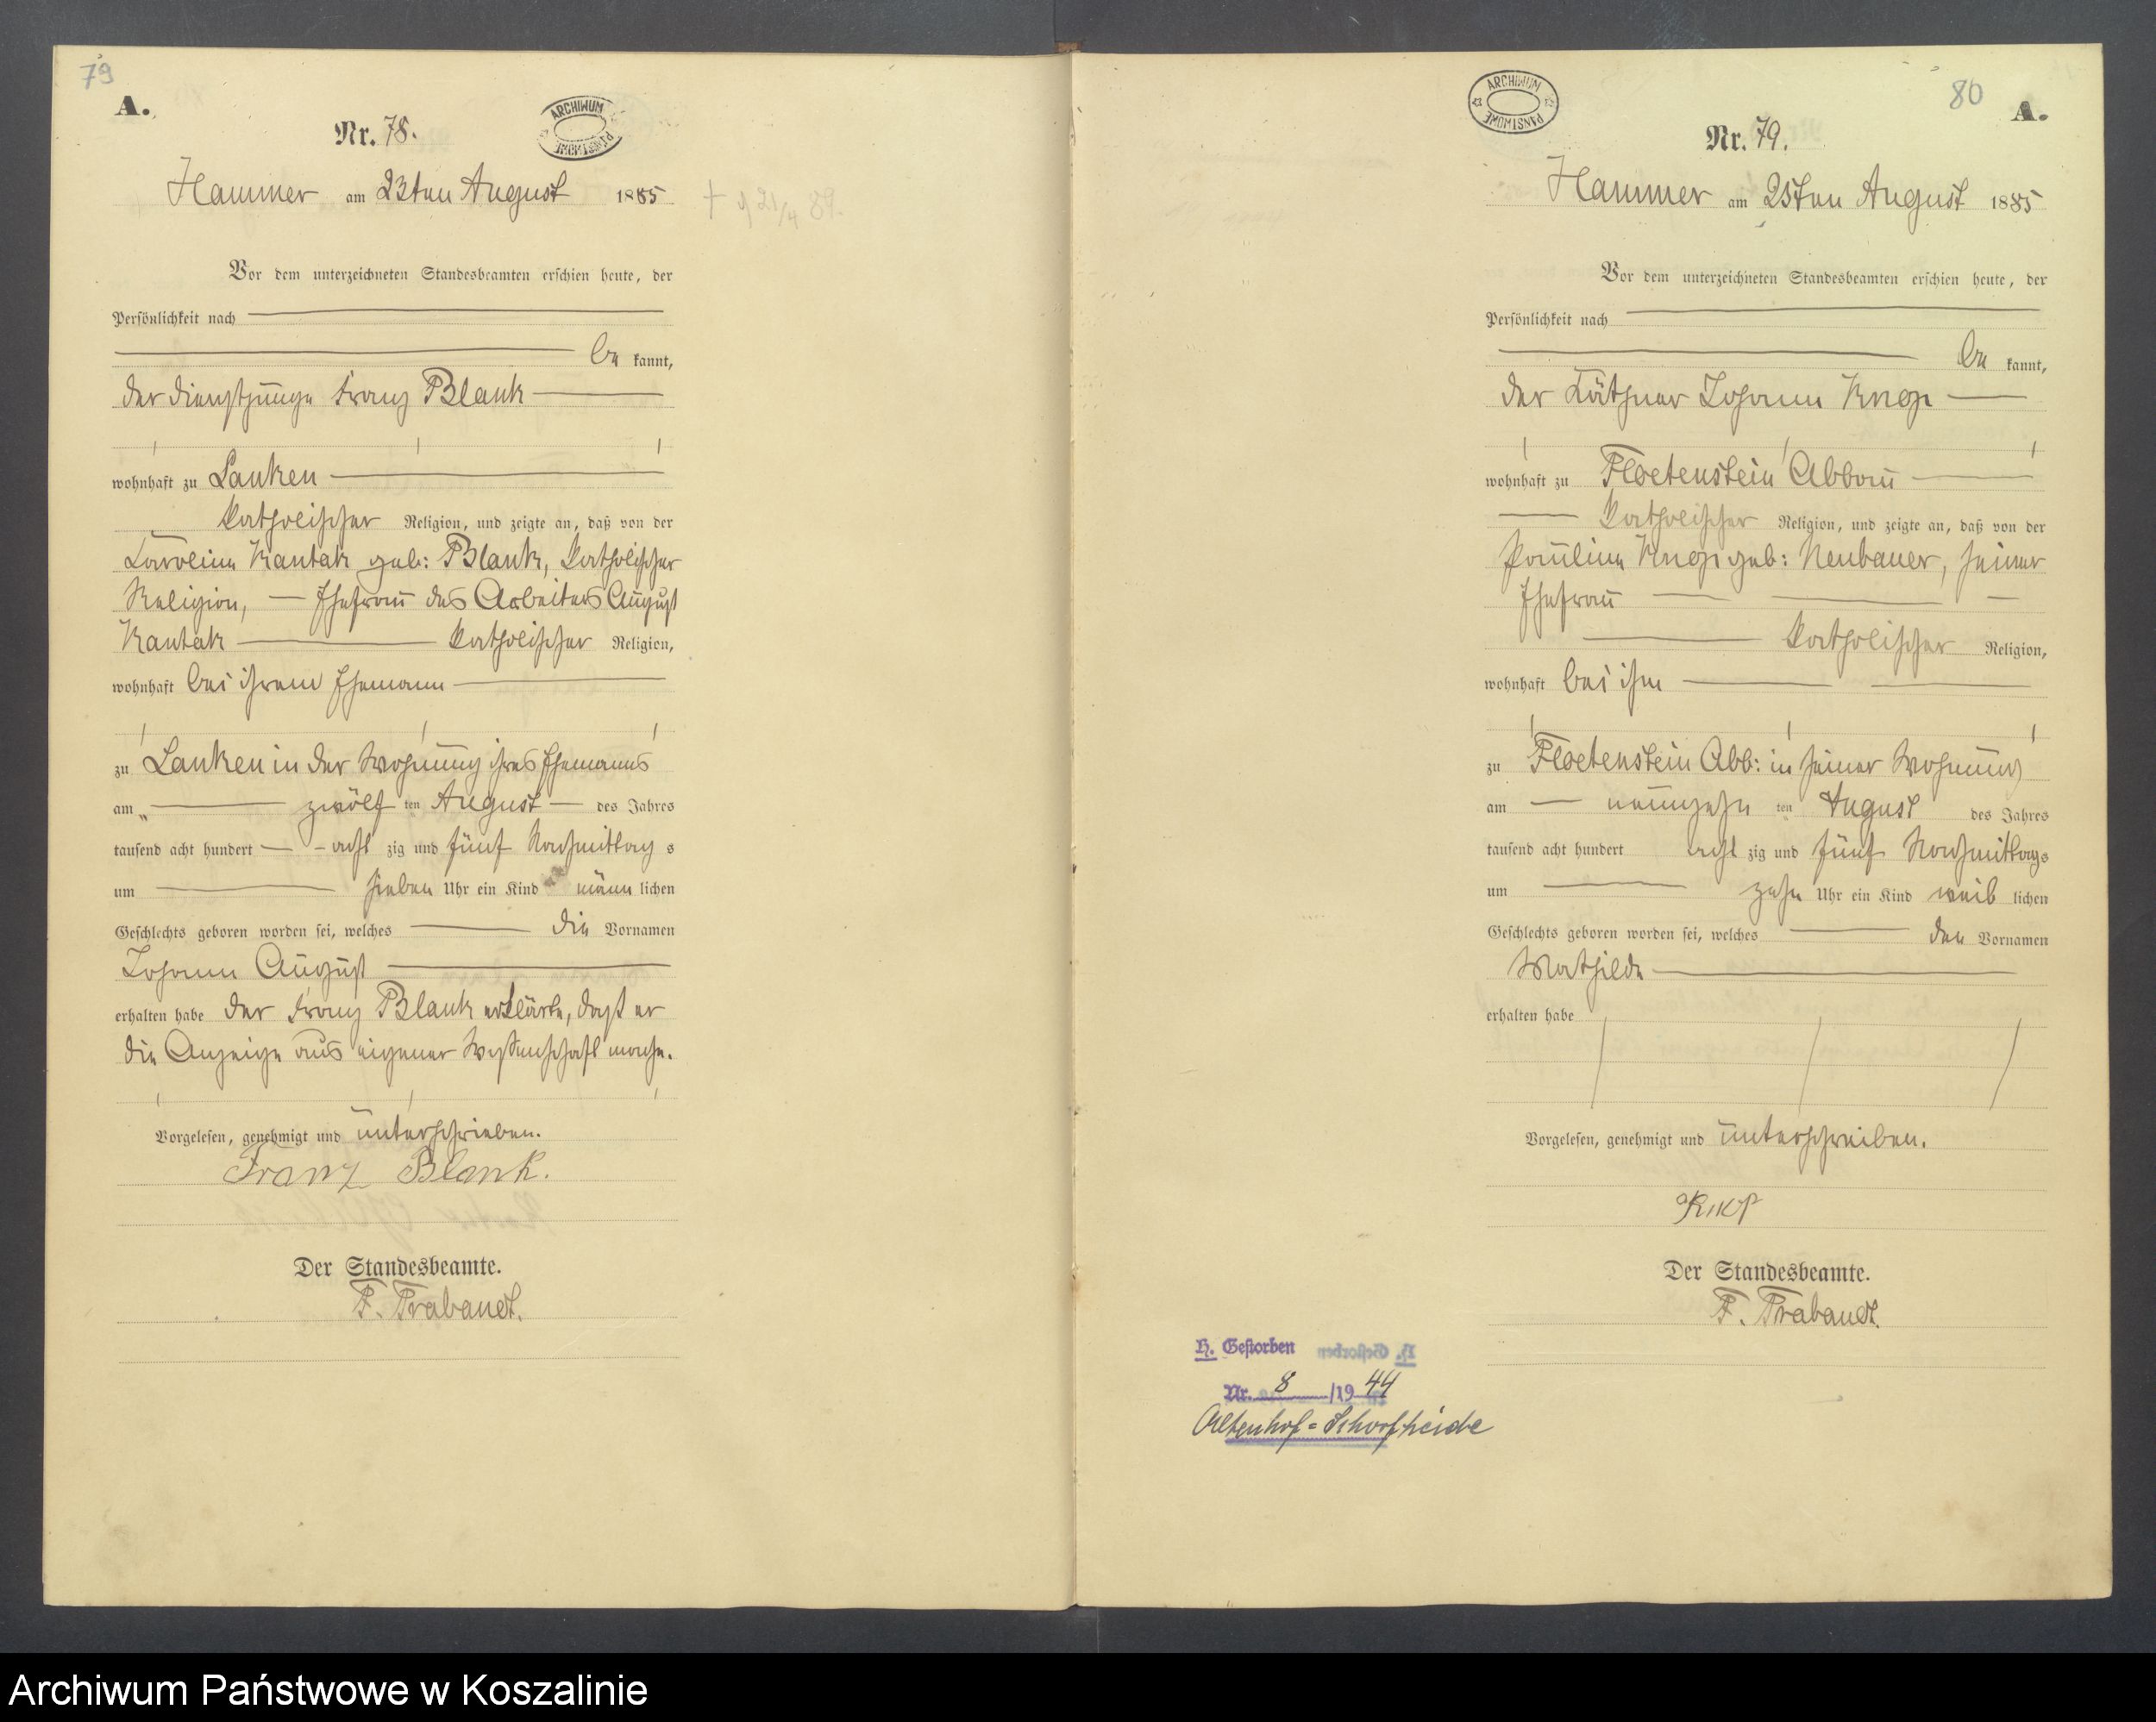 79
A.
Nr. 78.
ARCHIWUM PAŃSTWOWE
Hammer am 23ten August 1885
Vor dem unterzeichneten Standesbeamten erschien heute, der
Persönlichkeit nach
be kannt,
der Dienstjunge Franz Blank
wohnhaft zu Lanken
katholischer Religion, und zeigte an, daß von der
Karoline Kantak geb: Blank, katholischer
Religion, – Ehefrau des Arbeiters August
Kantak katholischer Religion,
wohnhaft bei ihrem Ehemann
zu Lanken in der Wohnung ihres Ehemanns
am zwölf ten August des Jahres
tausend acht hundert acht zig und fünf Nachmittag s
um sieben Uhr ein Kind männ lichen
Geschlechts geboren worden sei, welches die Vornamen
Johann August
erhalten habe der Franz Blank erklärte, daß er
die Anzeige aus eigener Wissenschaft mache.
Vorgelesen, genehmigt und unterschrieben.
Franz Blank.
Der Standesbeamte.
F. Trabandt.
80
A.
Nr. 79.
ARCHIWUM PAŃSTWOWE
Hammer am 25ten August 1885
Vor dem unterzeichneten Standesbeamten erschien heute, der
Persönlichkeit nach
be kannt,
der Käthner Johann Knop
wohnhaft zu Floetenstein Abbau
katholischer Religion, und zeigte an, daß von der
Pauline Knop geb: Neubauer, seiner
Ehefrau
katholischer Religion,
wohnhaft bei ihm
zu Floetenstein Abb: in seiner Wohnung
am neunzehn ten August des Jahres
tausend acht hundert acht zig und fünf Nachmittags
um zehn Uhr ein Kind weib lichen
Geschlechts geboren worden sei, welches den Vornamen
Mathilde
erhalten habe
Vorgelesen, genehmigt und unterschreiben.
Der Standesbeamte.
F. Trabandt.
H. Gestorben
Nr. 8 /19 44
Altenhof=Schorfheide
Archiwum Państwowe w Koszalinie